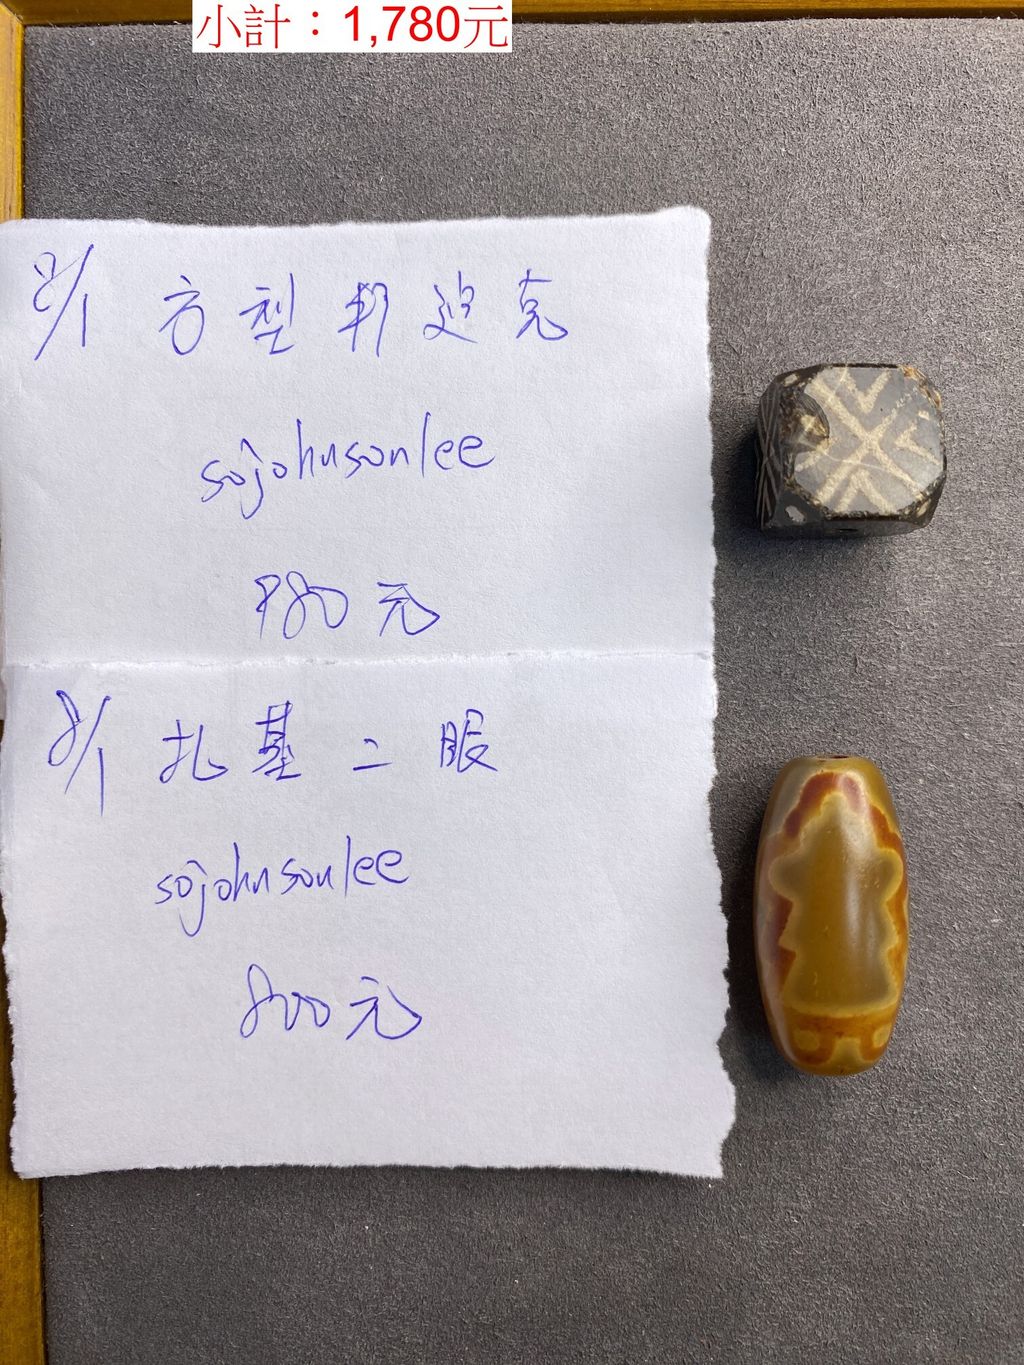 小計：1,780元
方型邦迪克
sojohnsonlee
980元
8/1 扎基二眼
sojohnsonlee
800元